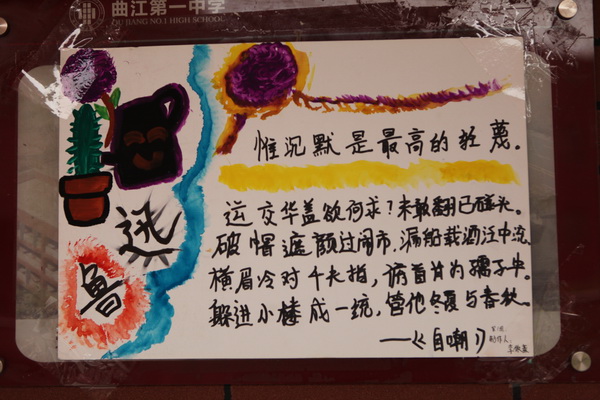 曲江第一中学
QU JIANG NO.1 HIGH SCHOOL
惟沉默是最高的轻蔑。
运交华盖欲何求?未敢翻已碰头。
破帽遮颜过闹市,漏船载酒泛中流。
横眉冷对千夫指,俯首甘为孺子牛。
躲进小楼成一统,管他冬夏与春秋。
——《自嘲》
制作人:
鲁迅